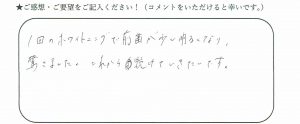 ★ご感想・ご要望をご記入ください！（コメントをいただけると幸いです。）
1回のホワイトニングで前歯が少し明るくなり、
驚きました。これから継続けていきたいです。